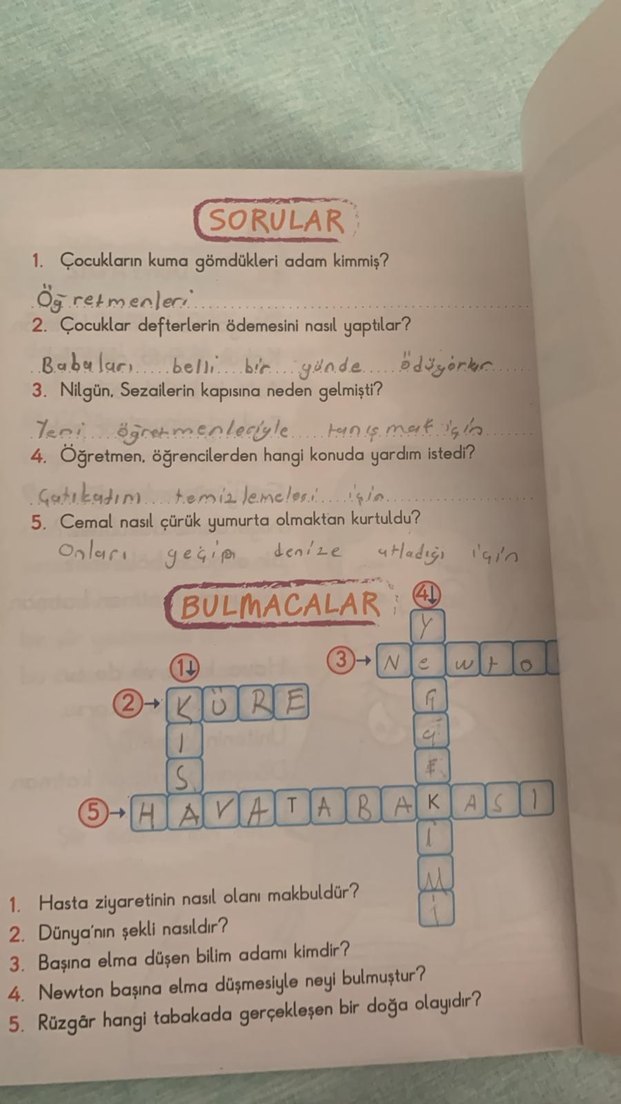 SORULAR
1. Çocukların kuma gömdükleri adam kimmiş?
Öğretmenleri
2. Çocuklar defterlerin ödemesini nasıl yaptılar?
Babaları belli bir günde ödüyorlar
3. Nilgün, Sezailerin kapısına neden gelmişti?
Yeni öğretmenleriyle tanışmak için
4. Öğretmen, öğrencilerden hangi konuda yardım istedi?
Çatıkatını temizlemeleri için
5. Cemal nasıl çürük yumurta olmaktan kurtuldu?
Onları geçip denize atladığı için
BULMACALAR
4↓
Y
3→ Newto
1↓
2→ KÜRE
I
S
5→ HAVATABAKASI
İ
M
İ
1. Hasta ziyaretinin nasıl olanı makbuldür?
2. Dünya'nın şekli nasıldır?
3. Başına elma düşen bilim adamı kimdir?
4. Newton başına elma düşmesiyle neyi bulmuştur?
5. Rüzgâr hangi tabakada gerçekleşen bir doğa olayıdır?